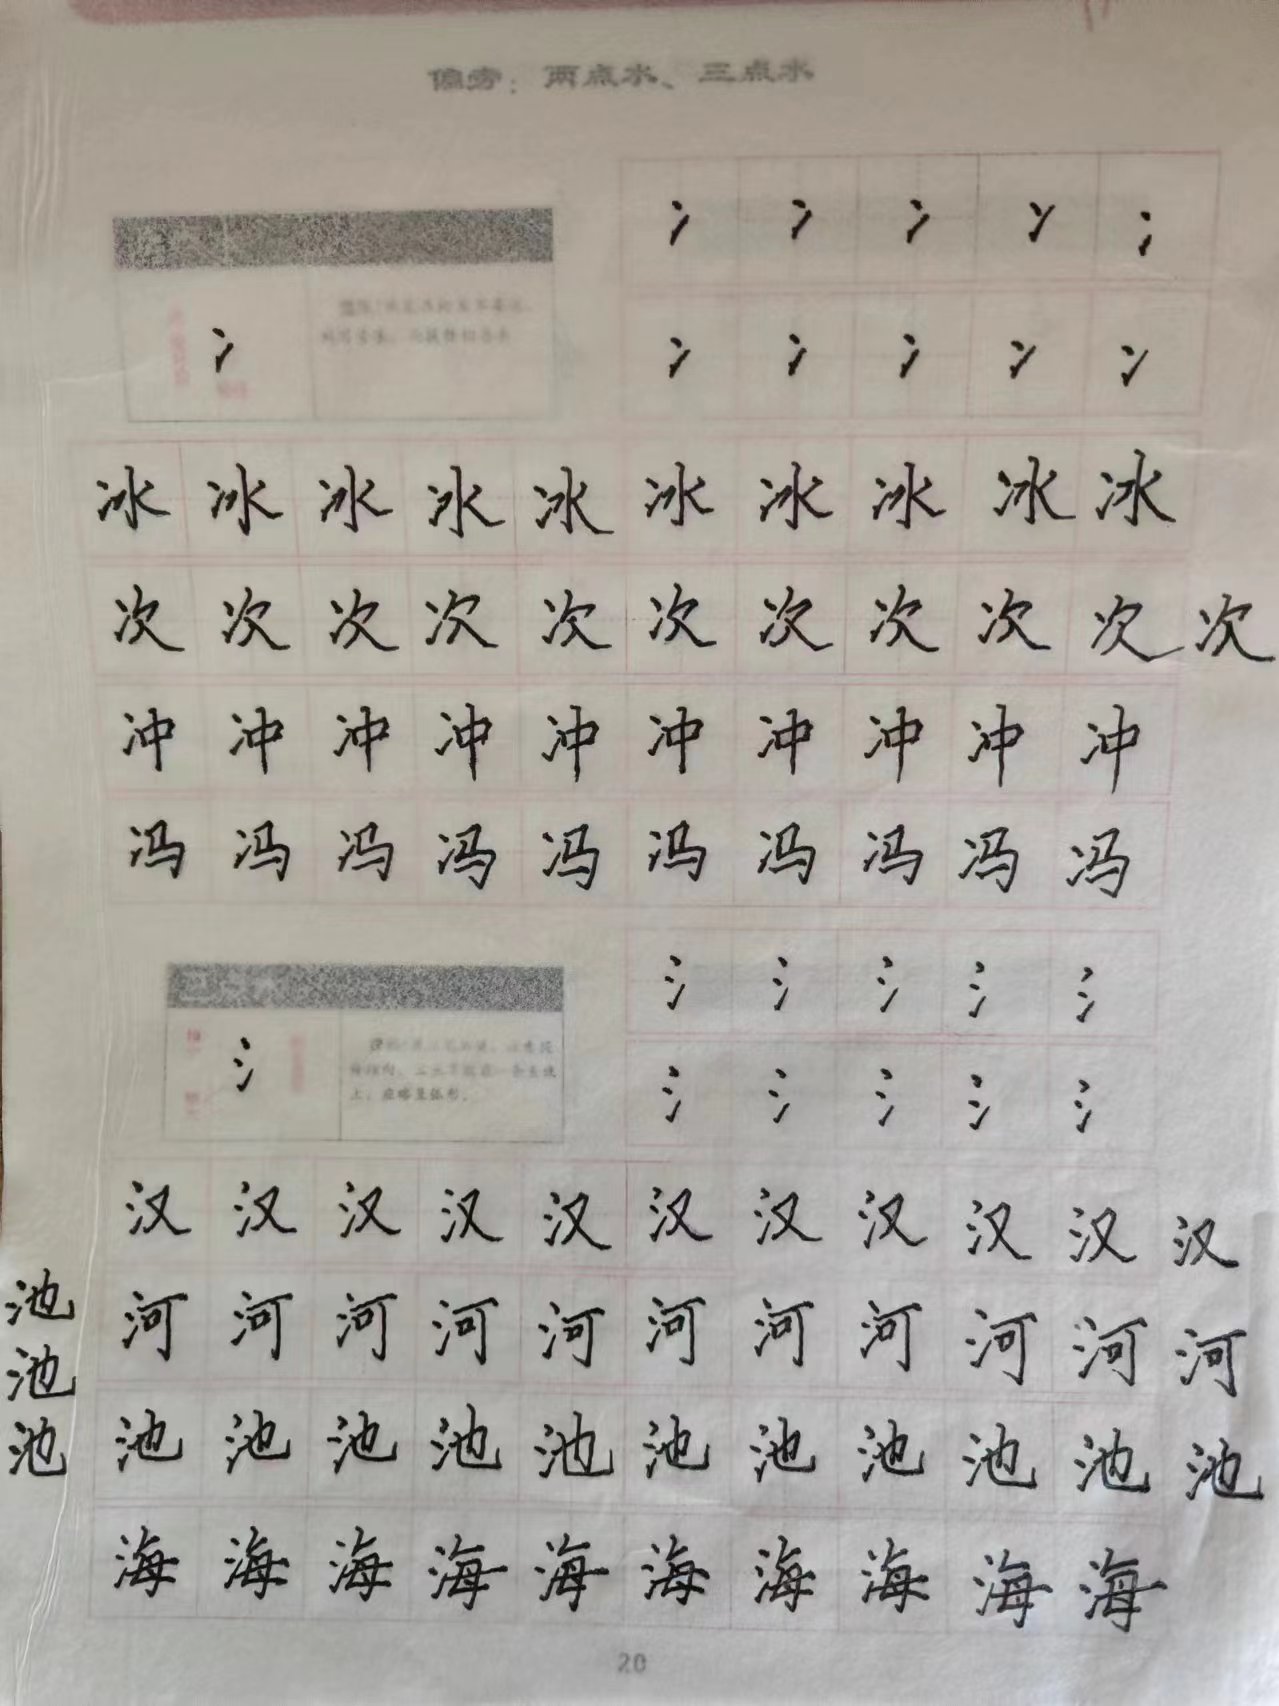 偏旁：两点水、三点水
冫 冫 冫 冫 冫
冫
冫 冫 冫 冫 冫
冰 冰 冰 冰 冰 冰 冰 冰 冰 冰
次 次 次 次 次 次 次 次 次 次 次
冲 冲 冲 冲 冲 冲 冲 冲 冲 冲
冯 冯 冯 冯 冯 冯 冯 冯 冯 冯
氵 氵 氵 氵 氵
氵
氵 氵 氵 氵 氵
汉 汉 汉 汉 汉 汉 汉 汉 汉 汉 汉
池
河 河 河 河 河 河 河 河 河 河 河
池
池 池 池 池 池 池 池 池 池 池 池 池
海 海 海 海 海 海 海 海 海 海
20